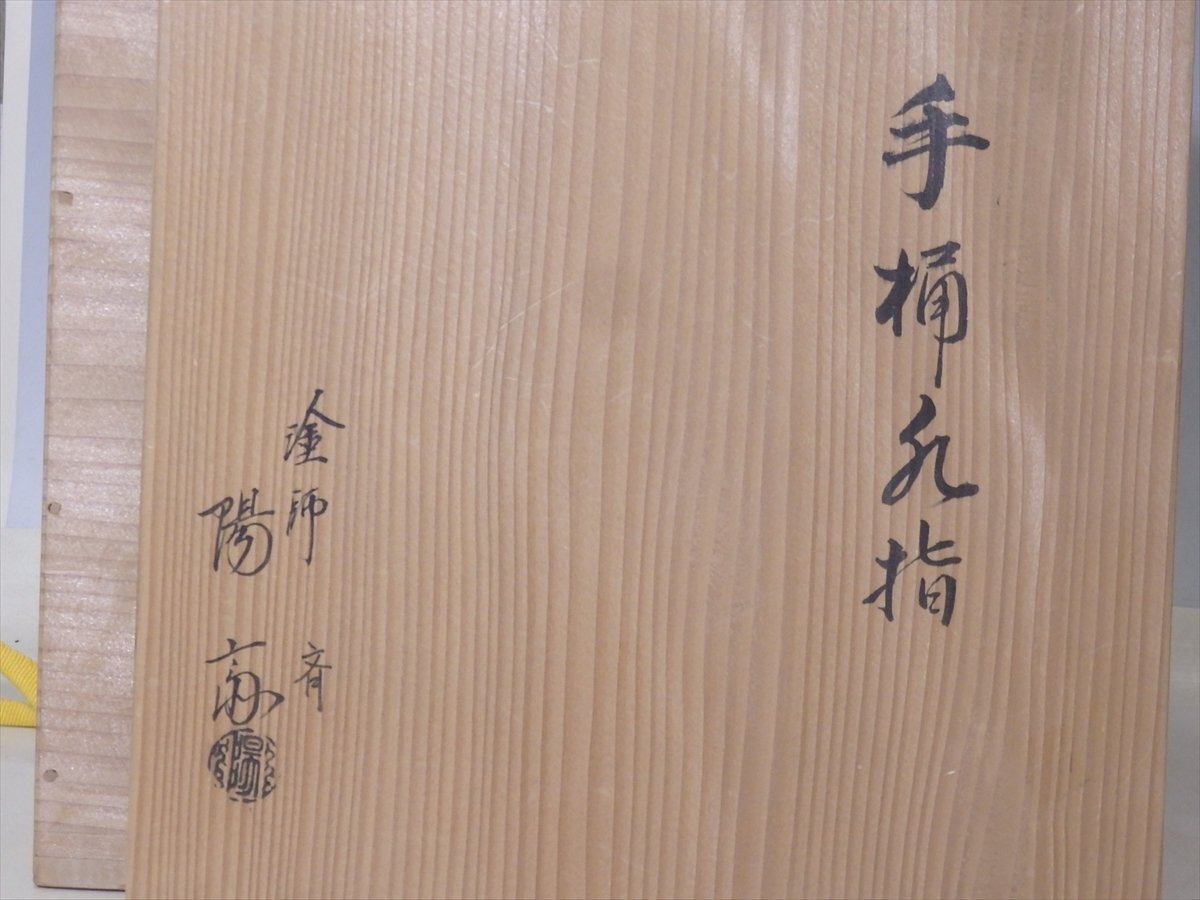 手桶水指
塗師
陽斉